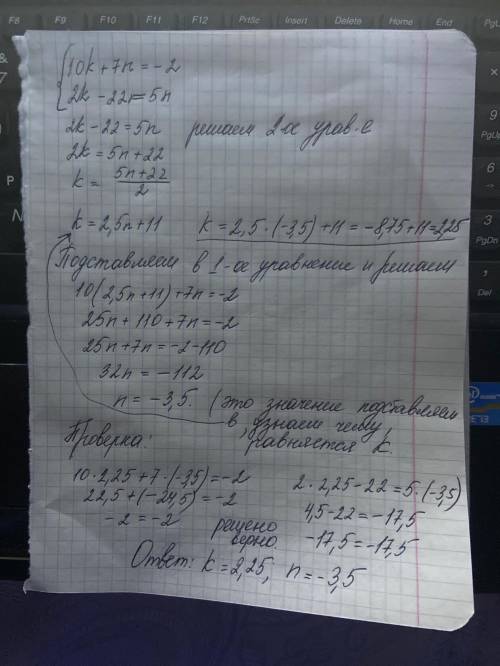 F8 F9 F10 F11 F12 PrtSc Insert Delete Home End PgU
{10k + 7n = -2
2k - 22 = 5n
2k - 22 = 5n решаем 2-ое урав-е
2k = 5n + 22
k = (5n + 22)/2
k = 2,5n + 11 k = 2,5 · (-3,5) + 11 = -8,75 + 11 = 2,25
Подставляем в 1-ое уравнение и решаем
10(2,5n + 11) + 7n = -2
25n + 110 + 7n = -2
25n + 7n = -2 - 110
32n = -112
n = -3,5. (это значение подставляем
в, узнаем чему
равняется k.
Проверка:
10 · 2,25 + 7 · (-3,5) = -2
22,5 + (-24,5) = -2
-2 = -2
2 · 2,25 - 22 = 5 · (-3,5)
4,5 - 22 = -17,5
-17,5 = -17,5
решено
верно
Ответ: k = 2,25, n = -3,5
7
P
N
9
PgUp
6
3
PgDn
Del